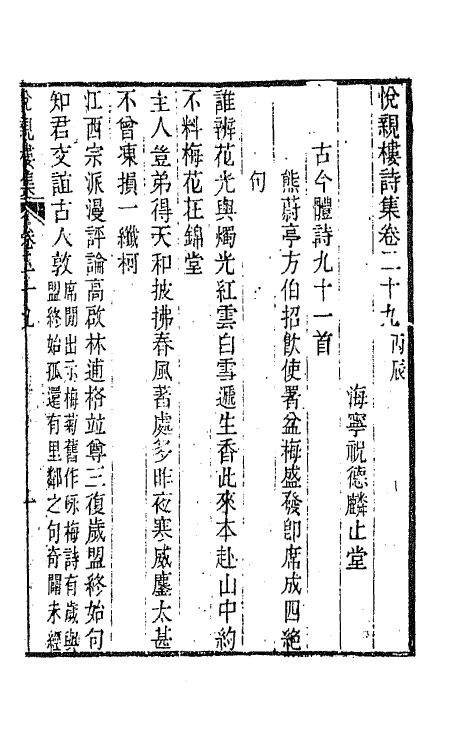 悅親樓詩集卷二十九 丙辰
海寧祝德麟止堂
古今體詩九十一首
熊蔚亭方伯招飲使署盆梅盛發卽席成四絕
句
誰辨花光與燭光紅雲白雪遞生香此來本赴山中約
不料梅花在錦堂
主人豈弟得天和披拂春風著處多昨夜寒威鏖太甚
不曾凍損一纖柯
江西宗派漫評論高啟林逋格竝尊三復歲盟終始句
知君交誼古人敦席閒出示梅菊舊作咏梅詩有歲與
盟終始孤還有里鄰之句奇闢未經
悅親樓集 卷二十九 一